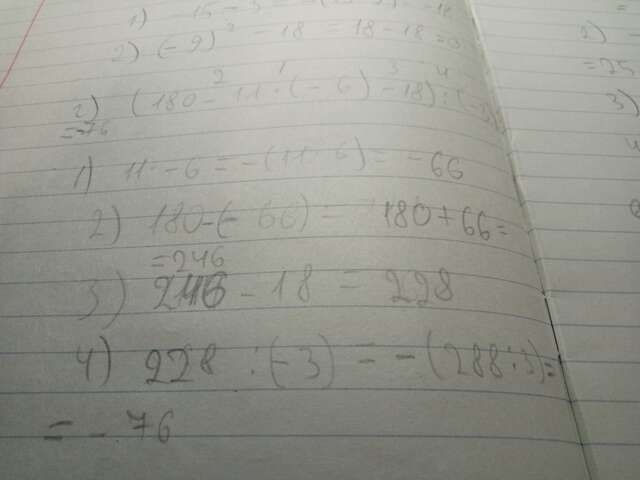 2) (-9)² - 18 = 18 - 18 = 0
2 1 3 4
2) (180 - 11·(-6) - 18) : (-3)
= -76
1) 11·-6 = -(11·6) = -66
2) 180-(-66) = 180+66=
=246
3) 246 - 18 = 228
4) 228 : (-3) = -(288:3)=
= -76
2) -
=25
3)
4